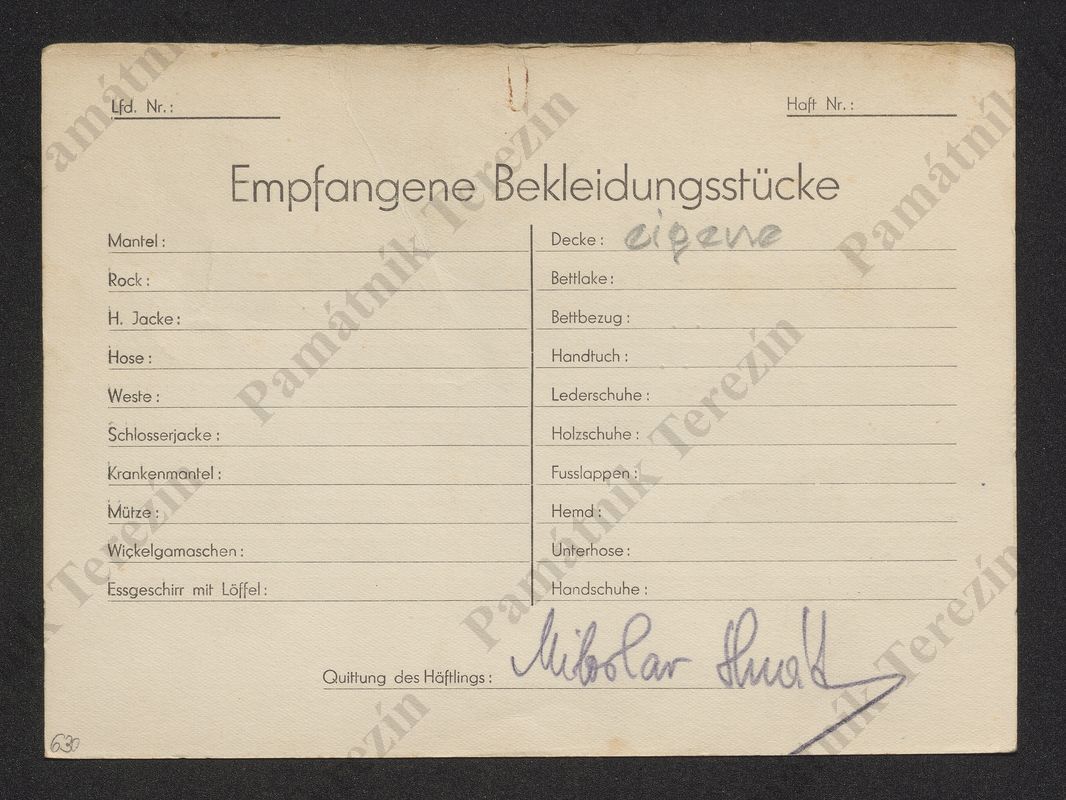 Lfd. Nr.:
Haft Nr.:
Empfangene Bekleidungsstücke
Mantel:
Rock:
H. Jacke:
Hose:
Weste:
Schlosserjacke:
Krankenmantel:
Mütze:
Wickelgamaschen:
Essgeschirr mit Löffel:
Decke: eigene
Bettlake:
Bettbezug:
Handtuch:
Lederschuhe:
Holzschuhe:
Fusslappen:
Hemd:
Unterhose:
Handschuhe:
Quittung des Häftlings: Miloslav
630
Památník Terezín